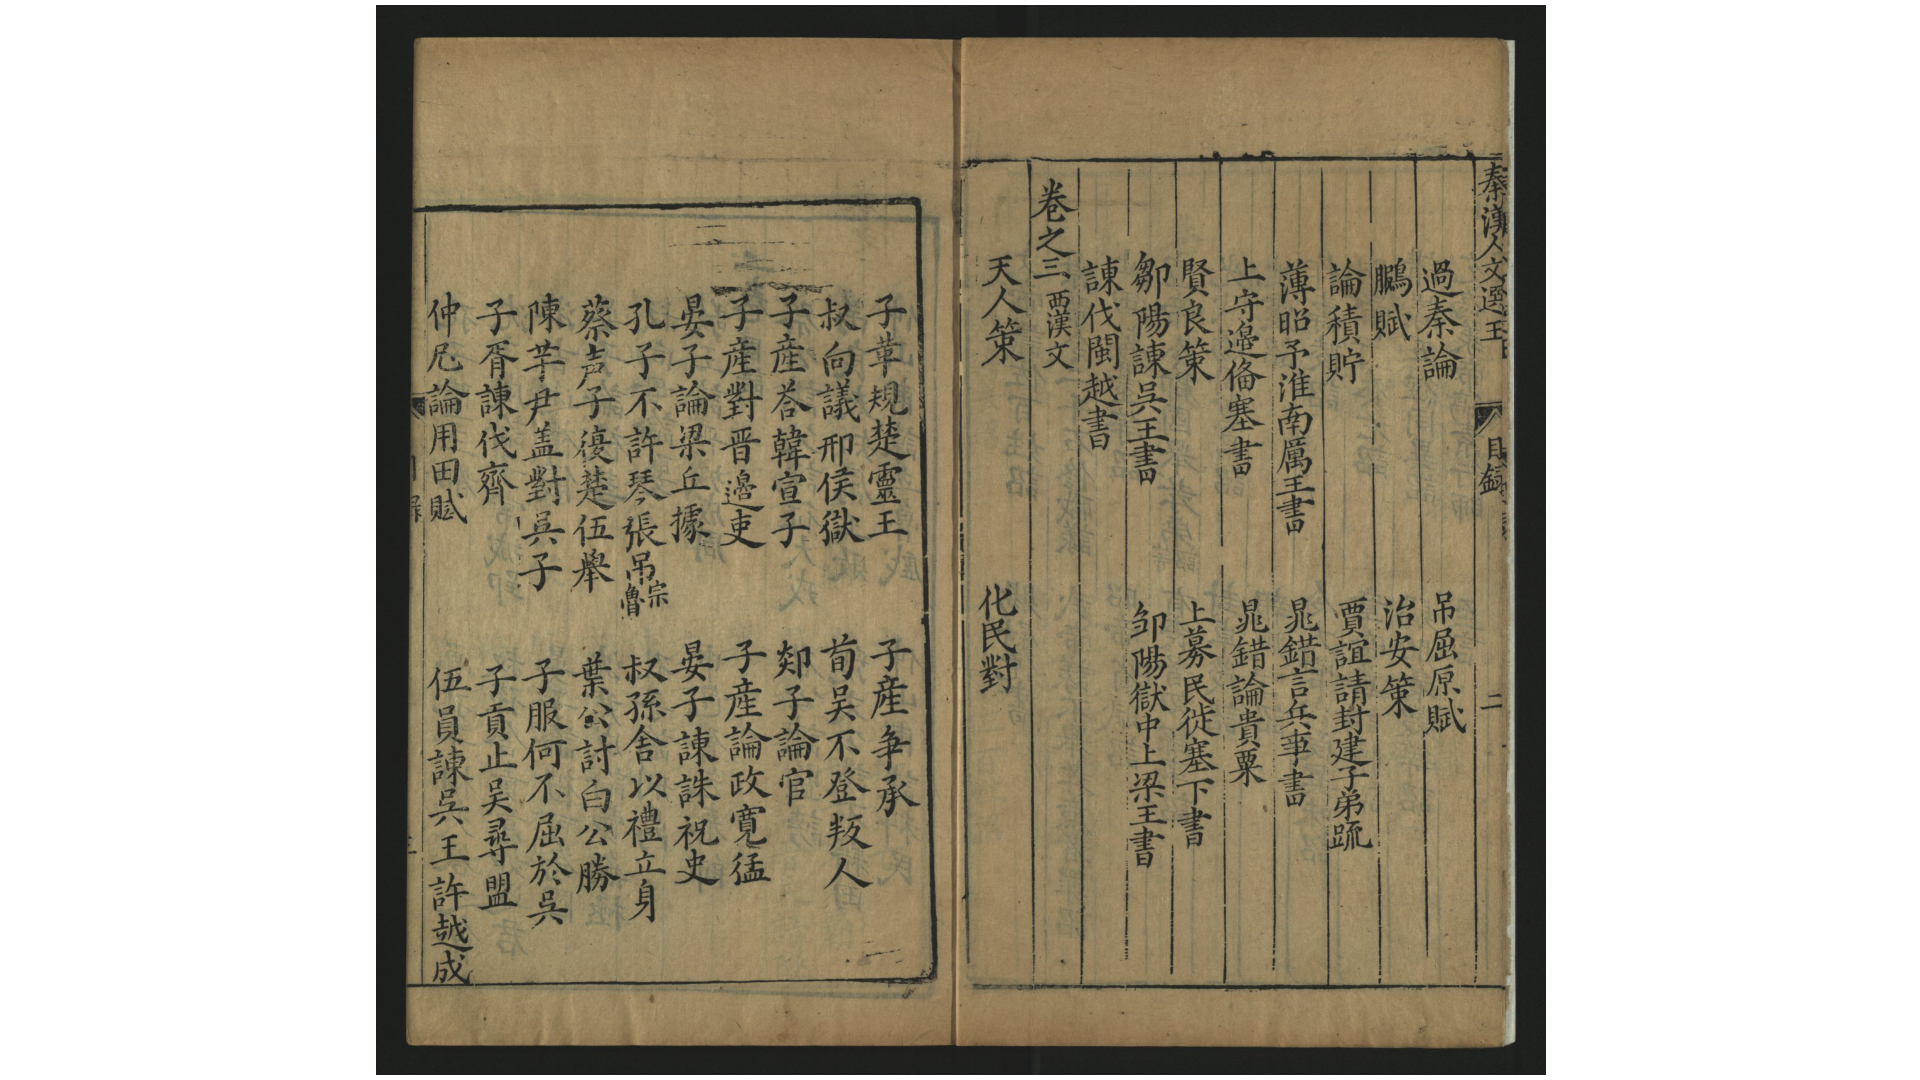 秦漢人文選玉 目録 二
過秦論 吊屈原賦
鵩賦 治安策
論積貯 賈誼請封建子弟疏
薄昭予淮南厲王書 晁錯言兵事書
上守邉俻塞書 晁錯論貴粟
賢良策 上募民徙塞下書
鄒陽諫吳王書 邹陽獄中上梁王書
諫伐閩越書
卷之三 西漢文
天人策 化民對
子革規楚靈王 子産争承
叔向議邢侯獄 荀吴不登叛人
子産荅韓宣子 郯子論官
子産對晋邉吏 子産論政寛猛
晏子論梁丘據 晏子諫誅祝史
孔子不許琴張吊宗魯 叔孫舍以禮立身
蔡声子復楚伍舉 葉公討白公勝
陳芊尹盖對吳子 子服何不屈於吳
子胥諫伐齊 子貢止吴尋盟
仲尼論用田賦 伍員諫吳王許越成